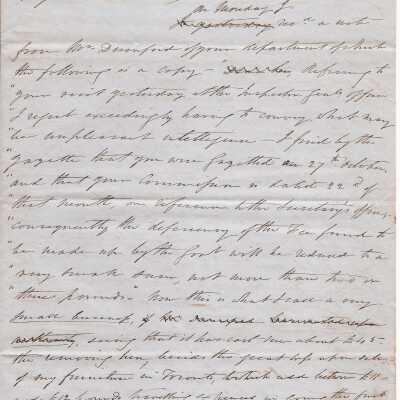 on Monday I
yesterday rec.d a note
from Mr. Durnford of your department of which
the following is a copy - " Referring to
"your visit yesterday at the Inspector Genl's office
I regret exceedingly having to convey what may
"be unpleasant intelligence - I find by the
"Gazette that you were Gazetted on 27th October
"and that your Commission is dated 22.d of
"that month, on reference to the Secretary's office,
"consequently the deficiency of the Fee found to
"be made up by the Govt will be reduced to a
"very small sum, not more than two or
"three pounds." Now this is what I call a very
small business, if
, seeing that it has cost me about £45
the removing here, besides the great loss upon sale
of my furniture in Toronto, which was between
pounds, travelling expenses in coming the first